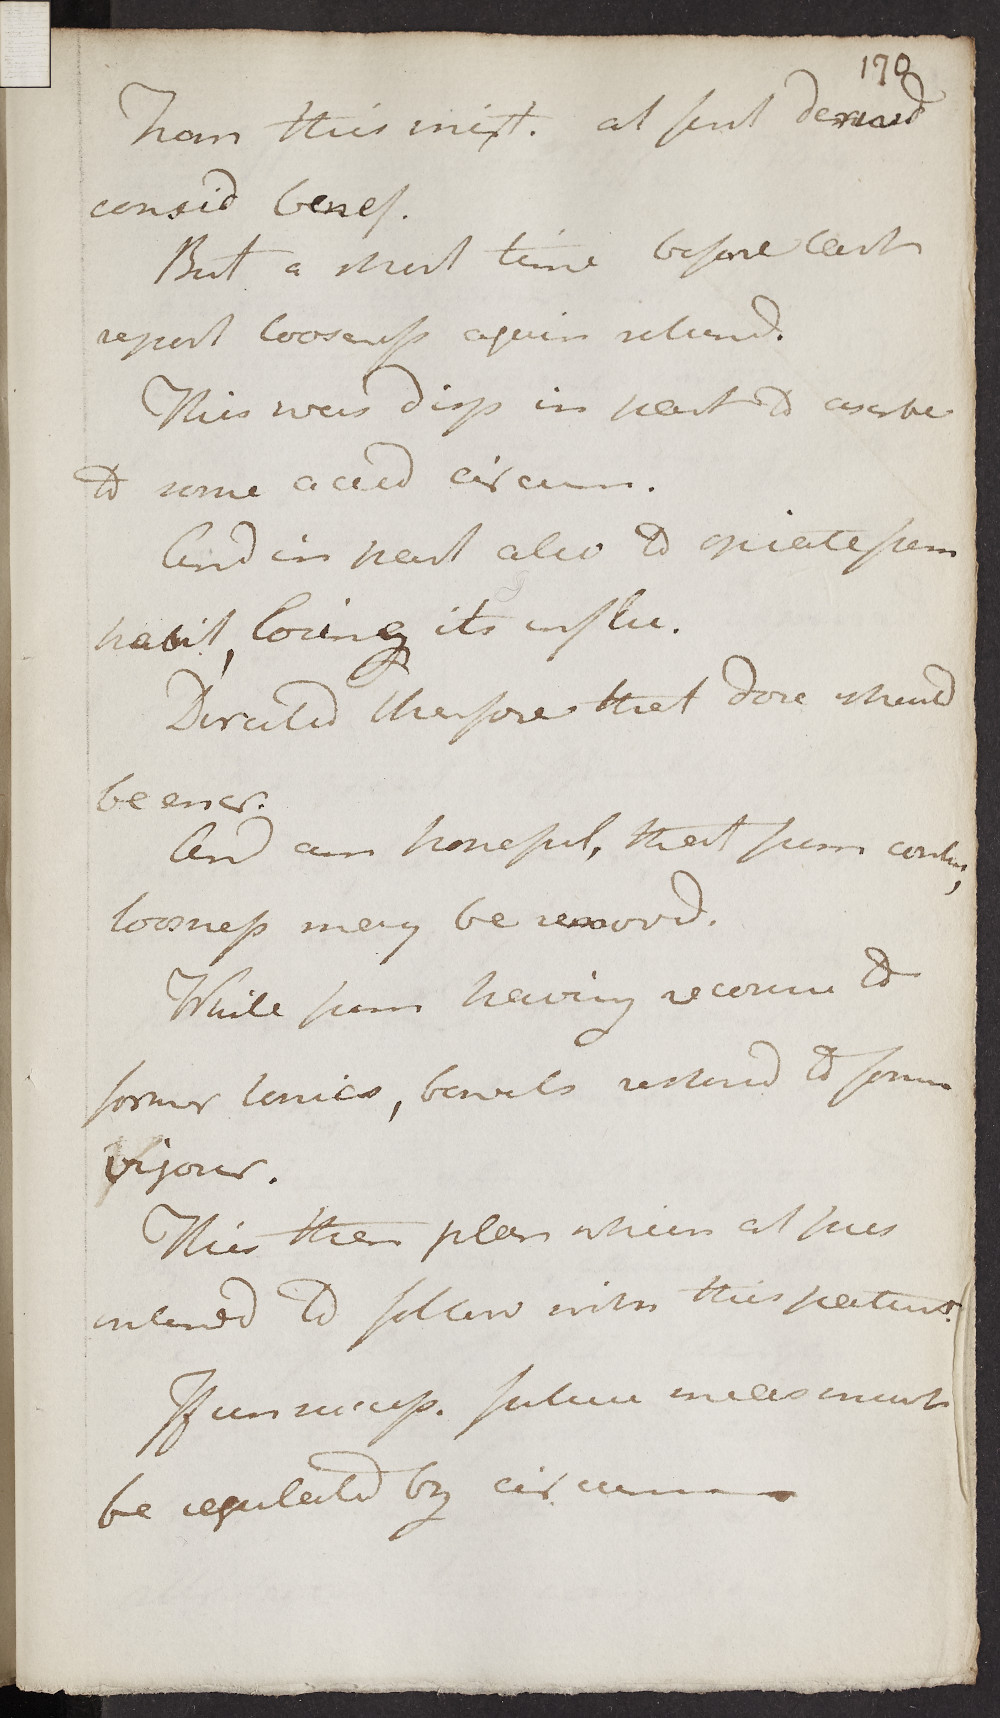 170
From this mixt. at first derivd
consid benef.
But a short time before last
report loosness again returnd.
This was disp in part to ascribe
to some accid circum.
And in part also to opiate from
habit, losing its influ.
Directed therefore that dose should
be encr.
And am hopeful, that from contin,
loosness may be removd.
While from having recourse to
former tonics, bowels restored to former
vigour.
This then plan which at pres
intend to follow with this patient.
If unsuccess. future meas must
be regulated by circum